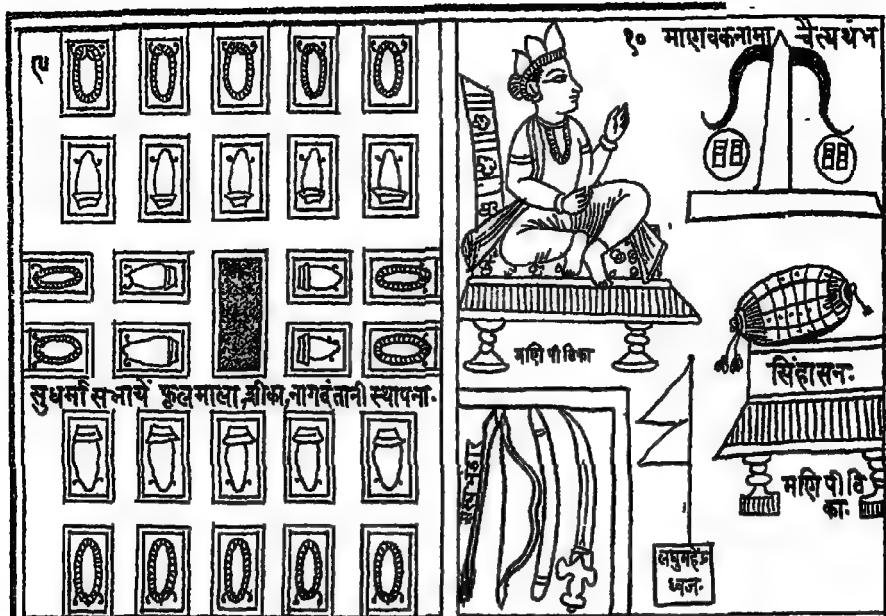 १५
सुधर्मा सभायें फूलमाला, शीका, नागदंतानी स्थापना.
१० माणवकनामा चैत्यथंभ
मणि पीठिका
सिंहासन.
मणि पीठि
का.
लघुमहेंद्र
ध्वज.